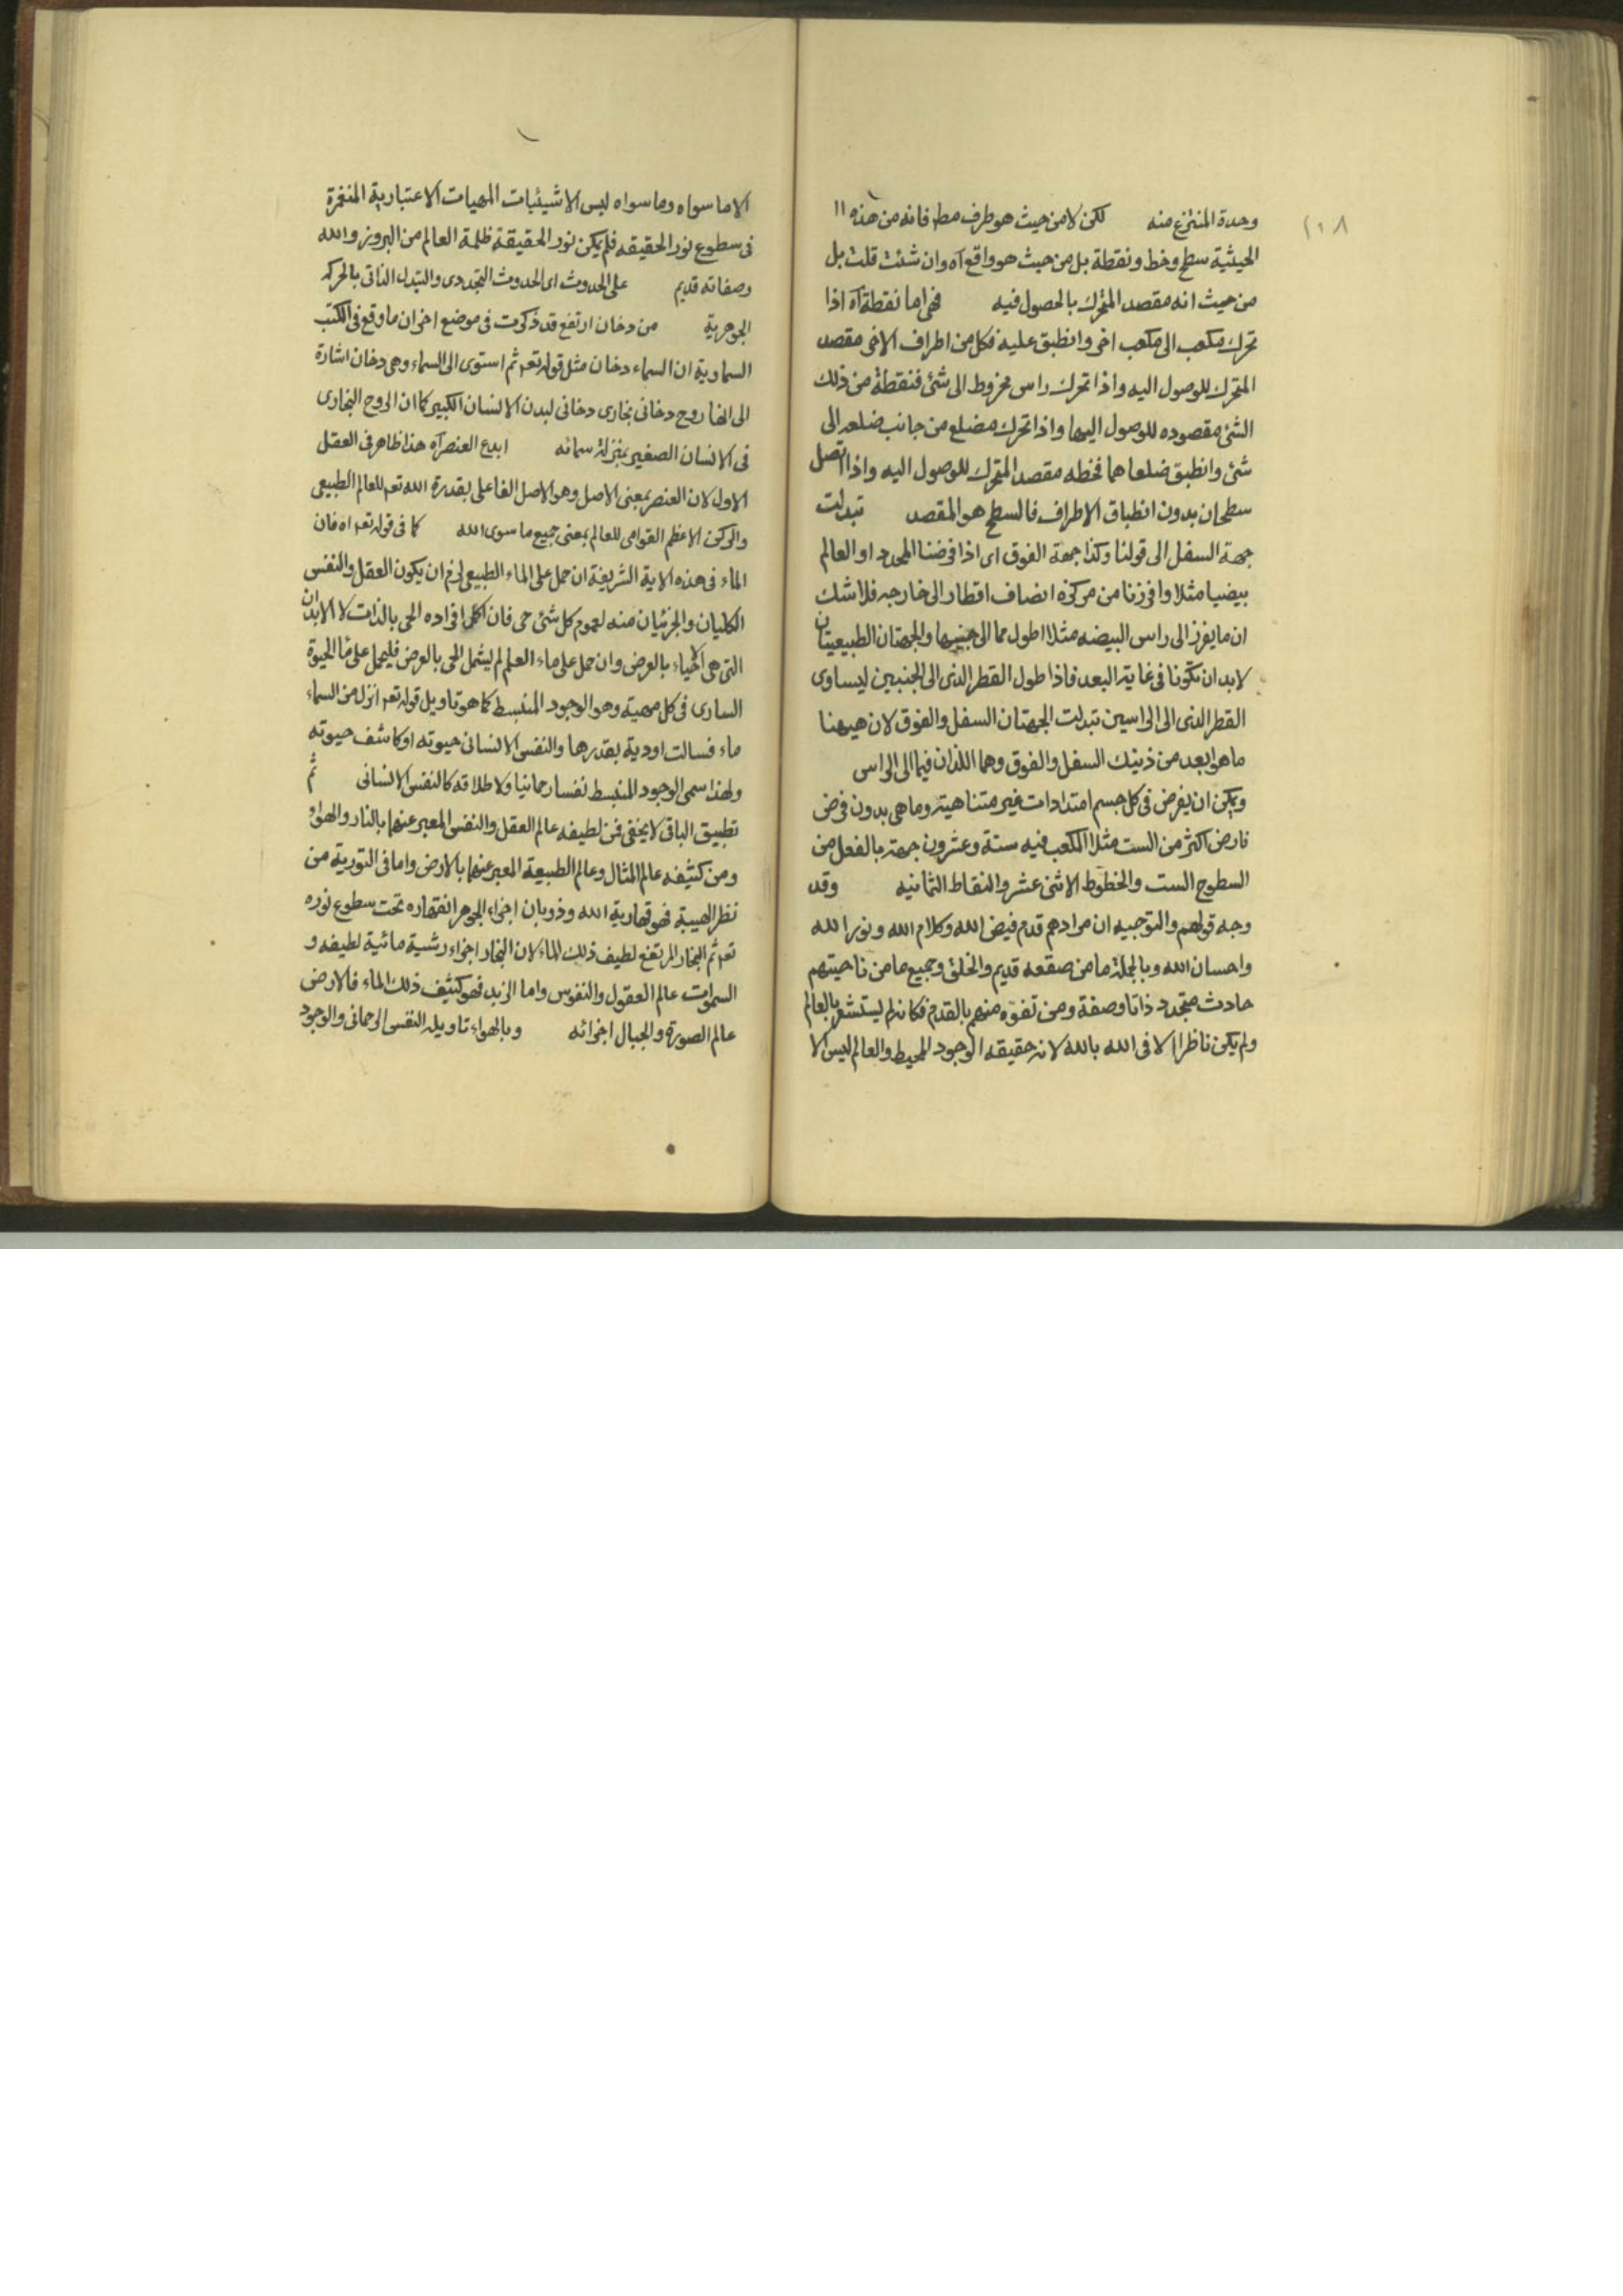 ١٠٨
وحدة المنتزع منه لكن لا من حيث هو طرف مط فانه من هذه
الحيثية سطح وخط ونقطة بل من حيث هو واقع آه وان شئت قلت بل
من حيث انه مقصد المتحرك بالحصول فيه فهى اما نقطة آه اذا
تحرك مكعب الى مكعب اخر وانطبق عليه فكل من اطراف الاخر مقصد
المتحرك للوصول اليه واذا تحرك راس مخروط الى شئ فنقطة من ذلك
الشئ مقصوده للوصول اليها واذا تحرك مضلع من جانب ضلعه الى
شئ وانطبق ضلعاهما فخطه مقصد المتحرك للوصول اليه واذا اتصل
سطحان بدون انطباق الاطراف فالسطح هو المقصد تبدلت
جهة السفل الى قولنا وكذا جهة الفوق اى اذا فرضنا المحدد او العالم
بيضيا مثلا وافرزنا من مركزه انصاف اقطار الى خارجه فلا شك
ان ما يفرز الى راس البيضه مثلا اطول مما الى جنبيها والجهتان الطبيعيتان
لابد ان تكونا فى غاية البعد فاذا طول القطر الذى الى الجنبين ليساوى
القطر الذى الى الراسين تبدلت الجهتان السفل والفوق لان هيهنا
ما هو ابعد من ذينك السفل والفوق وهما اللذان فيما الى الراس
ويمكن ان يفرض فى كل جسم امتدادات غير متناهية وما هى بدون فرض
فارض اكثر من الست مثلا المكعب فيه ستة وعشرون جهة بالفعل من
السطوح الست والخطوط الاثنى عشر والنقاط الثمانيه وقد
وجه قولهم والتوجيه ان مرادهم قدم فيض الله وكلام الله ونور الله
واحسان الله وبالجملة ما من صقعه قديم والخلق وجميع ما من ناحيتهم
حادث متجدد ذاتا وصفة ومن تفوه منهم بالقدم فكانه لم يستشعر بالعالم
ولم يكن ناظرا الا فى الله بالله لانه حقيقه الوجود المحيط والعالم ليس الا
الا ما سواه وما سواه ليس الا شيئيات المهيات الاعتبارية المنغمرة
فى سطوع نور الحقيقه فلم يكن نور الحقيقة ظلمة العالم من البروز والله
وصفاته قديم على الحدوث اى الحدوث التجددى والتبدل الذاتى بالحركه
الجوهرية من دخان ارتفع قد ذكرت فى موضع اخر ان ما وقع فى الكتب
السماوية ان السماء دخان مثل قوله تعه ثم استوى الى السماء وهى دخان اشارة
الى انها روح دخانى بخارى دخانى لبدن الانسان الكبير كما ان الروح البخارى
فى الانسان الصغير بمنزلة سمائه ابدع العنصر آه هذا ظاهر فى العقل
الاول لان العنصر بمعنى الاصل وهو الاصل الفاعلى بقدرة الله تعه للعالم الطبيعى
والركن الاعظم القوامى للعالم بمعنى جميع ما سوى الله كما فى قوله تعه اه فان
الماء فى هذه الاية الشريفة ان حمل على الماء الطبيعى لزم ان يكون العقل والنفس
الكليان والجزئيان منه لعموم كل شئ حى فان اكمل افراده الحى بالذات لا الابدان
التى هى الاحياء بالعرض وان حمل على ماء العلم لم يشمل الحى بالعرض فليحمل على ماء الحيوة
السارى فى كل مهية وهو الوجود المنبسط كما هو تاويل قوله تعه انزل من السماء
ماء فسالت اودية بقدرها والنفس الانسانى حيوته او كاشف حيوته
ولهذا سمى الوجود المنبسط نفسا رحمانيا ولاطلاقه كالنفس الانسانى ثم
تطبيق الباقى لا يخفى فمن لطيفه عالم العقل والنفس المعبر عنهما بالنار والهواء
ومن كثيفه عالم المثال وعالم الطبيعة المعبر عنهما بالارض واما فى التورية من
نظر الهيبة فهو قهارية الله وذوبان اجزاء الجوهر انقهاره تحت سطوع نوره
تعه ثم البخار المرتفع لطيف ذلك الماء لان البخار اجزاء رشية مائية لطيفه و
السموات عالم العقول والنفوس واما الزبد فهو كثيف ذلك الماء فالارض
عالم الصورة والجبال اجزائه وبالهواء تاويله النفس الرحمانى والوجود